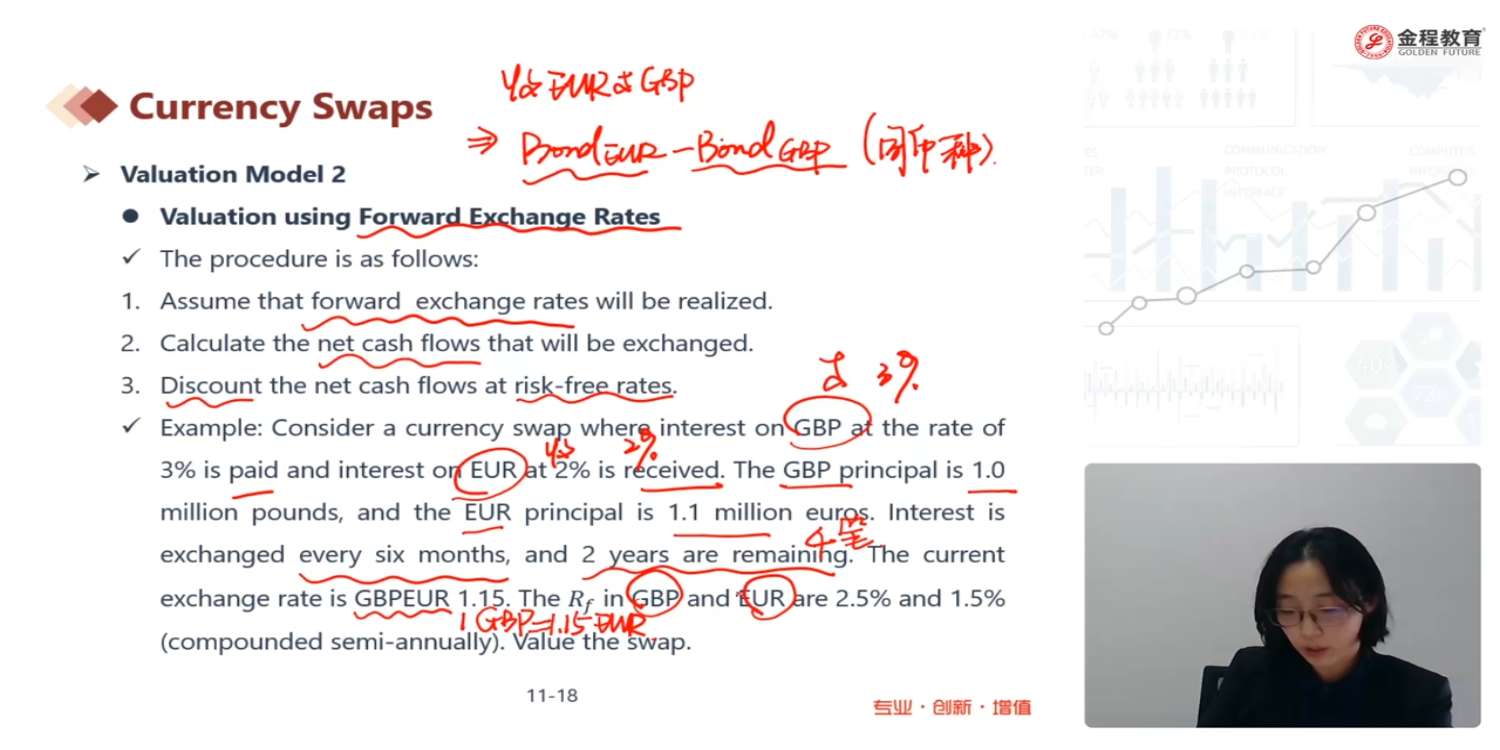 金程教育
GOLDEN FUTURE
收 EUR 付 GBP
Currency Swaps
⇒ Bond EUR - Bond GBP (同币种).
➢ Valuation Model 2
● Valuation using Forward Exchange Rates
✓ The procedure is as follows:
1. Assume that forward exchange rates will be realized.
2. Calculate the net cash flows that will be exchanged.
付 3%
3. Discount the net cash flows at risk-free rates.
✓ Example: Consider a currency swap where interest on GBP at the rate of
收 2%
3% is paid and interest on EUR at 2% is received. The GBP principal is 1.0
million pounds, and the EUR principal is 1.1 million euros. Interest is
4笔
exchanged every six months, and 2 years are remaining. The current
exchange rate is GBPEUR 1.15. The R_f in GBP and EUR are 2.5% and 1.5%
1 GBP=1.15 EUR
(compounded semi-annually). Value the swap.
11-18
专业·创新·增值